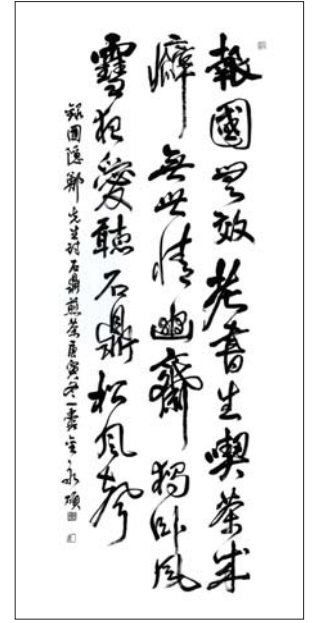 報國無效老書生喫茶成
癖無世情幽齋獨臥風
雪夜愛聽石鼎松風聲
錄圃隱鄭先生詩石鼎煎茶庚寅冬一 金永順